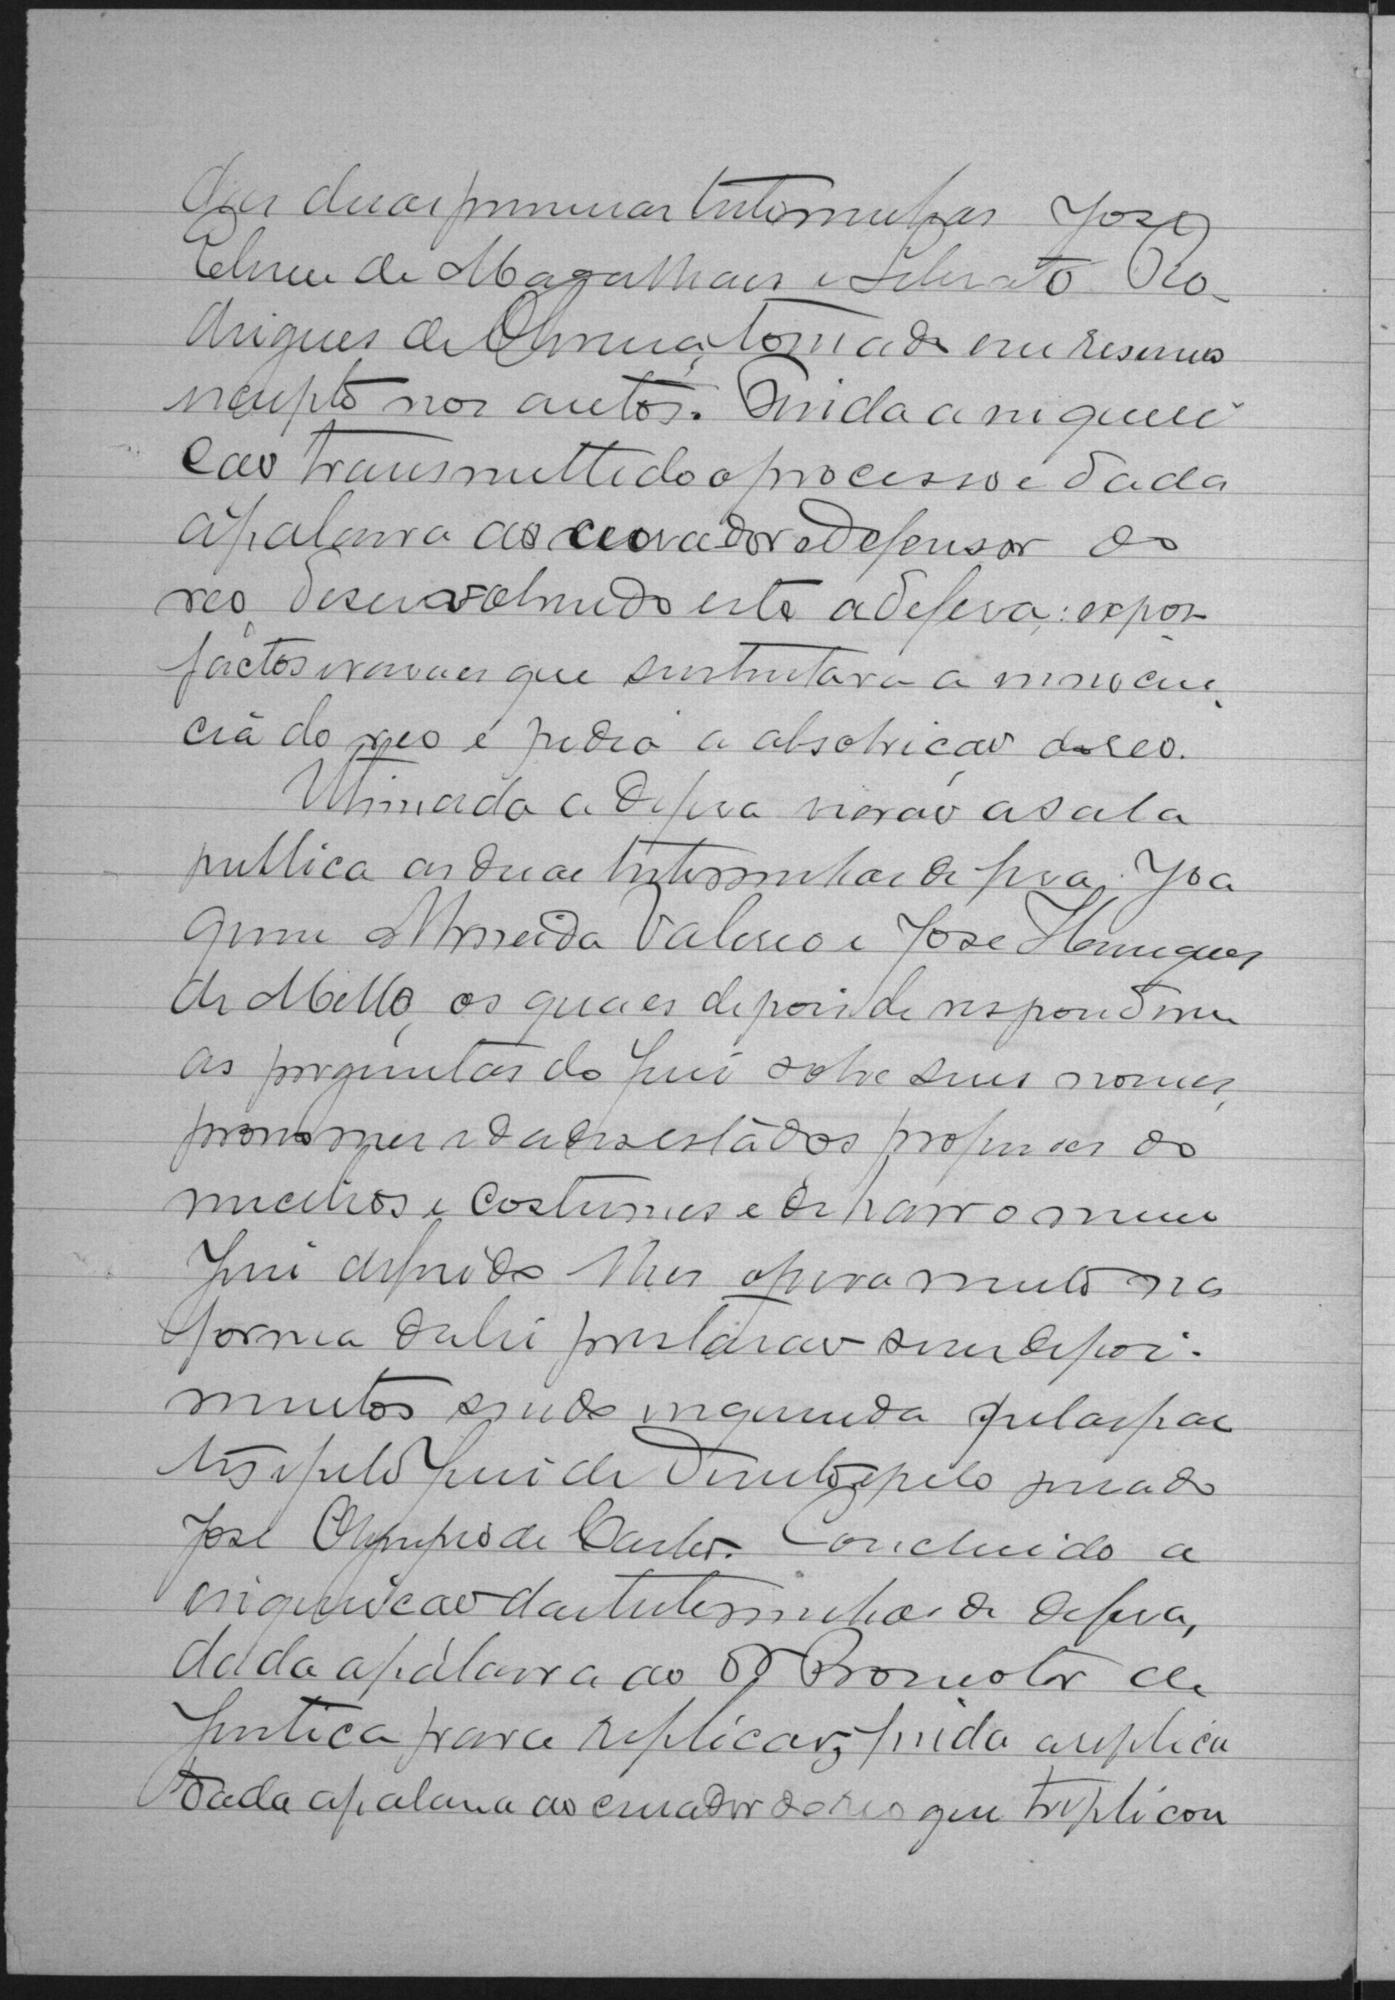 das duas primeiras testemunhas José
Elmeu de Magalhães e Liberato Ro-
drigues de Oliveira, tomado em resumo
escripto nos autos. Finda a inqueri
ção transmettido o processo e dada
a palavra ao curador e defensor do
reo, desenvolvendo este a defeza: expoz
factos e rasões que sustentava a innocen,
cia do reo e pedio a absolvição do reo.
Ultimada a defeza vierão a sala
publica as duas testemunhas de defeza, Joa
quim Almeida Valerio e José Henriques
de Mello, os quaes depois de responderem
as perguntas do Juiz sobre seus nomes,
pronomes idades estados profissões do
micilios e costumes e de haver o mesmo
Juiz deferido lhes o juramento na
forma da lei prestarão seus depoi-
mentos sendo inquerida pelas par
tes e pelo Juiz de Direito e pelo jurado
José Olympio de Castro. Concluido a
inquirição das testemunhas de defeza,
dada a palavra ao Dr Promotor de
Justiça para replicar, finda a replica
dada a palavra ao curador do reo que triplicou